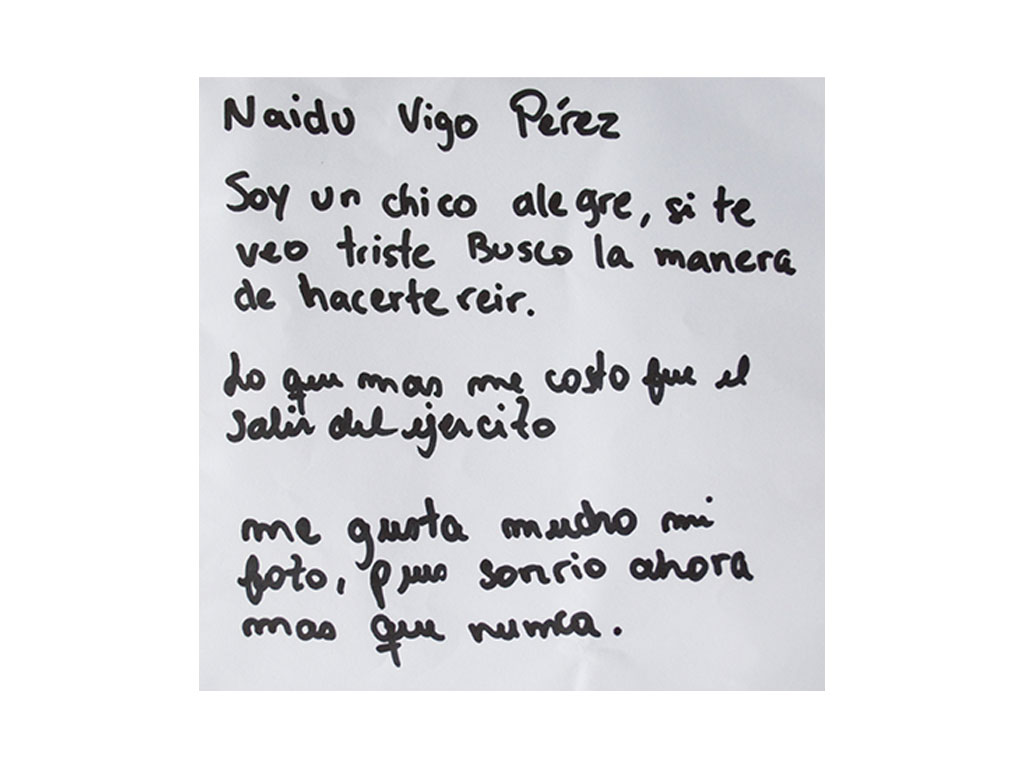 Naidu Vigo Pérez
Soy un chico alegre, si te
veo triste Busco la manera
de hacerte reir.
Lo que mas me costo fue el
salir del ejercito
me gusta mucho mi
foto, pues sonrio ahora
mas que nunca.